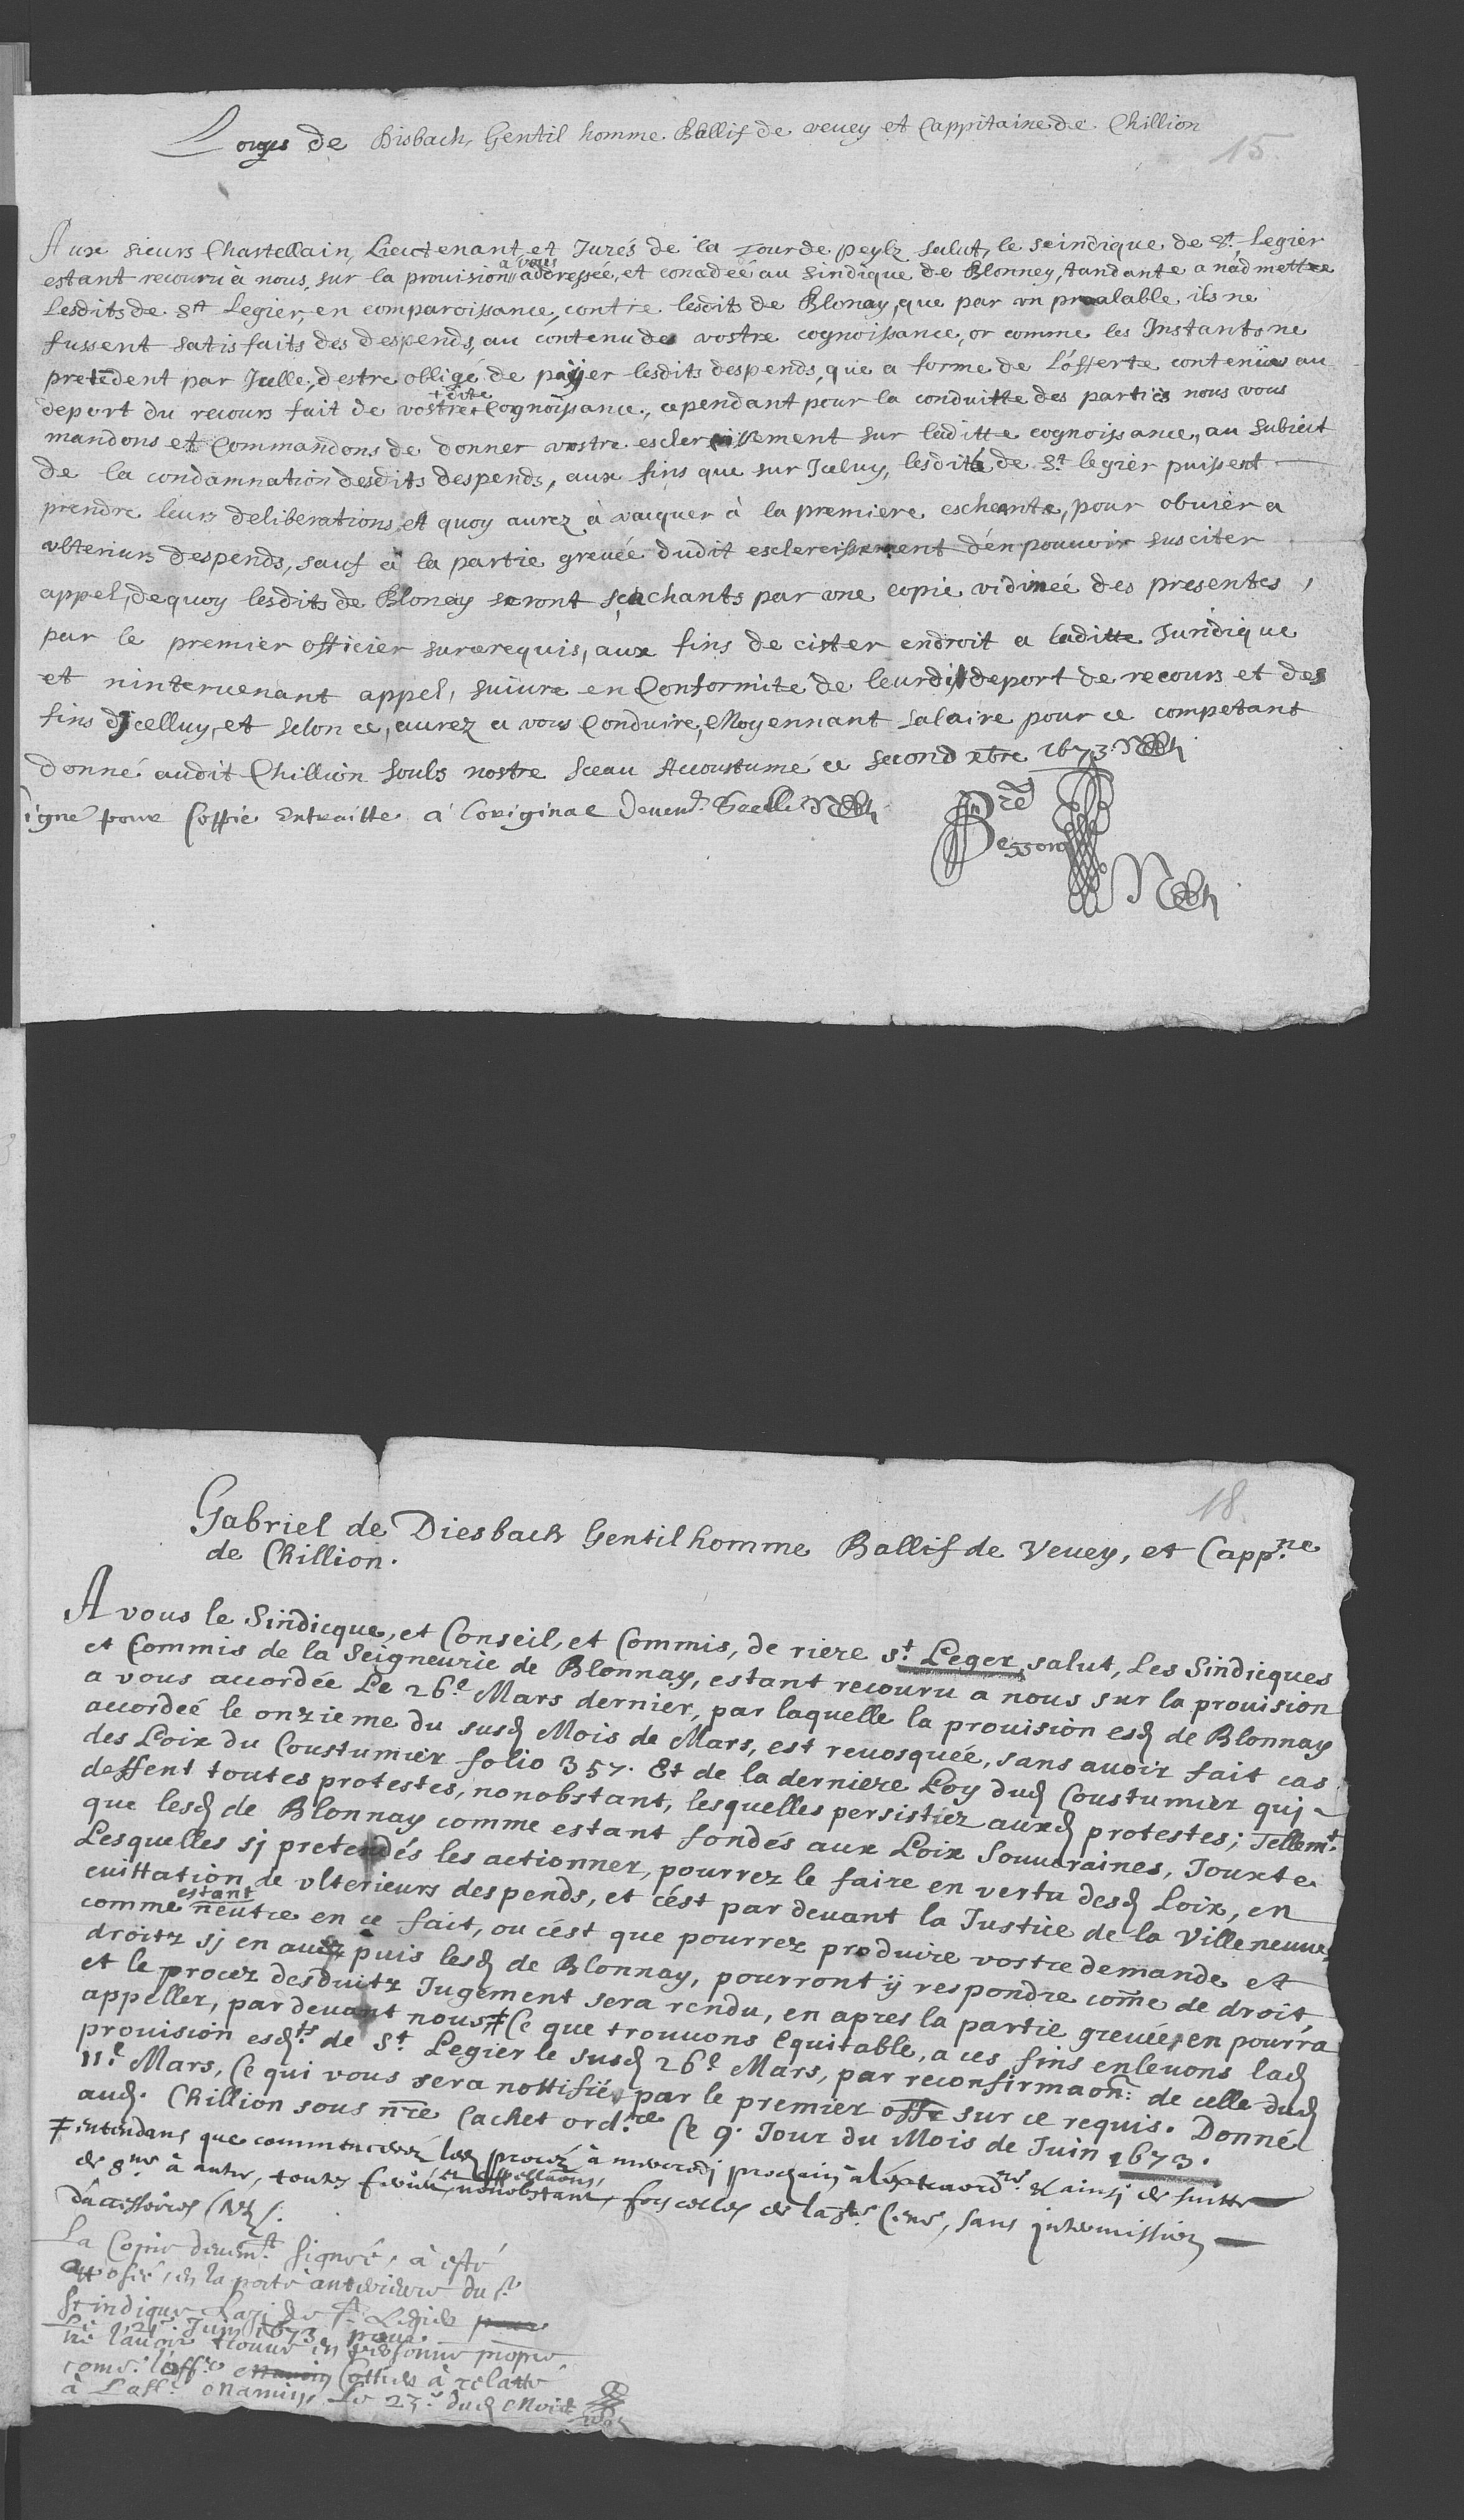 Louys de Disbach, Gentil homme Ballif de vevey et Cappitaine de Chillion
15.
Aux sieurs Chastellain, Lieutenant et Jurés de la Tour de peylz salut, le seindique de St. Legier
estant recouru à nous, sur la provision a vous addressée, et concedeé au sindique de Blonney, tandante a n'admettre
Lesdits de St Legier, en comparoissance, contre lesdits de Blonay, que par un prealable ils ne
fussent satisfaits des despends, au contenu de vostre cognoissance, or comme les Instants ne
pretedent par Jcelle, d'estre obligé de payer lesdits despends, que a forme de l'offerte contenue au
deport du recours fait de vostre +dite Cognoissance, cependant pour la conduitte des parties nous vous
mandons et Commandons de donner vostre esclercissement sur laditte cognoissance, au subiect
de la condamnation desdits despends, aux fins que sur Jceluy, lesdits de St. legier puissent
prendre leurs deliberations, A quoy aurez à vacquer à la premiere escheante, pour obvier a
ulterieurs despends, sauf à la partie grevée dudit esclercissement d'en pouvoir susciter
appel, dequoy lesdits de Blonay seront scachants par une copie vidimeé des presentes,
par le premier officier surcerequis, aux fins de cister endroit a laditte Juridique
et nintervenant appel, suivre en Conformité de leurdit deport de recours et des
fins d'Jcelluy, et selon ce, aurez a vous Conduire, Moyennant salaire pour ce competant
donné audit Chillion soubs nostre sceau Accoustumé ce second xbre 1673.
signé pour Coppie Extraitte a l'original
Besson
18.
Gabriel de Diesbach Gentilhomme Ballif de Vevey, et Cappne
de Chillion.
A vous le Sindicque, et Conseil, et Commis, de riere St. Leger, salut, Les Sindicques
et Commis de la Seigneurie de Blonnay, estant recouru a nous sur la provision
a vous accordée Le 26e. Mars dernier, par laquelle la provision esd de Blonnay
accordeé le onzieme du susd Mois de Mars, est revosquée, sans avoir fait cas
des Loix du Coustumier folio 357. Et de la derniere Loy dud Coustumier qui
deffent toutes protestes, nonobstant, lesquelles persistiez auxd protestes; Tellemt.
que lesd de Blonnay comme estant fondés aux Loix Souveraines, Jouxte
Lesquelles si pretendés les actionner, pourrez le faire en vertu desd Loix, en
evittation de ulterieurs despends, et c'est par devant la Justice de la Villeneuve,
comme estant neutre en ce fait, ou c'est que pourrez produire vostre demande et
droitz si en avez, puis lesd de Blonnay, pourront y respondre come de droit,
et le procez desduitz Jugement sera rendu, en apres la partie grevée, en pourra
appeller, par devant nous ≠ Ce que trouvons Equitable, a ces fins enlevons lad
provision esdts. de St. Legier le susd 26e. Mars, par reconfirmaon: de celle dud
11e. Mars, Ce qui vous sera nottifié, par le premier offr sur ce requis. Donné
aud. Chillion sous nre Cachet ordre Ce 9. Jour du Mois de Juin 1673.
≠ Entendans que commencerez led procez à mercredj prochain à l'extraord.re & ainsj de suitte
de 8ne à autre, toutes feries, et appellaons, nonobstant, sans jntermission
d'accessoires
La Copie devemt. signée, à esté
Le 21e. Juin 1673, pour
ne l'avoir trouvé en personne propre,
à relatté
Le 23e. dud Mois